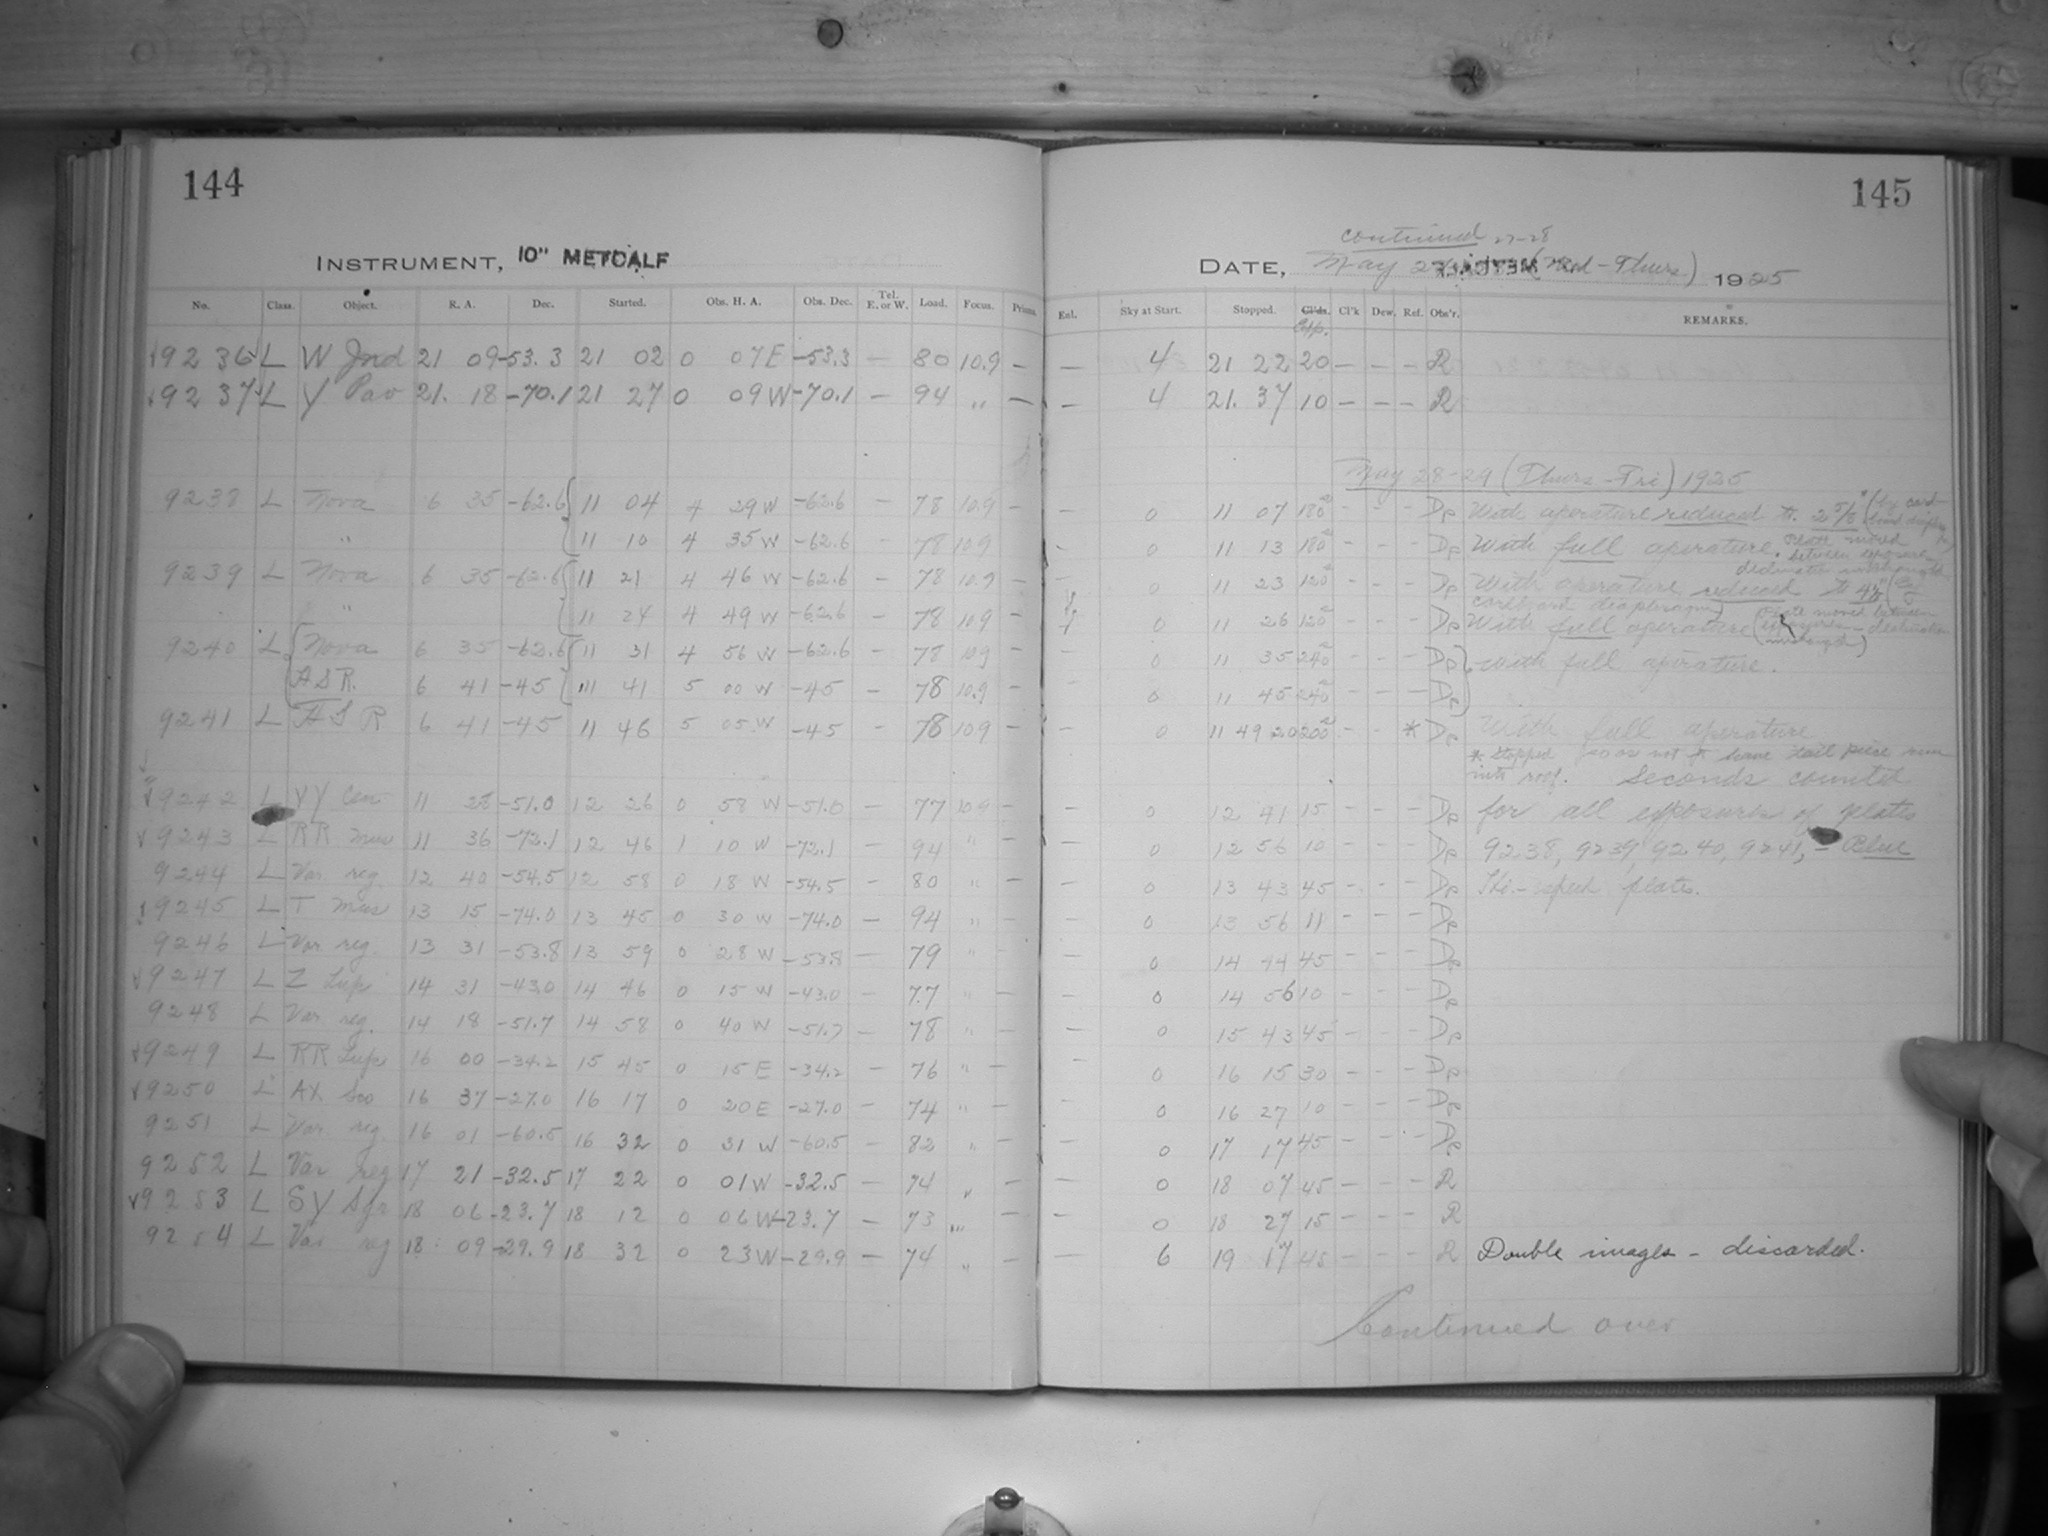 144
145
INSTRUMENT, 10" METCALF
continued 27-28
DATE, May (Wed - Thurs) 1925
No. Class. Object. R. A. Dec. Started. Obs. H. A. Obs. Dec. Tel. E. or W. Load. Focus. Prism. Enl. Sky at Start. Stopped. Cl'ds. Cl'k Dew. Ref. Obs'r. REMARKS.
Exp.
9236 L W Ind 21 09 -53.3 21 02 0 07 E -53.3 — 80 10.9 — — 4 21 22 20 — — — R
9237 L Y Pav 21. 18 -70.1 21 27 0 09 W -70.1 — 94 " — — 4 21. 37 10 — — — R
May 28-29 (Thurs - Fri) 1925
9238 L Nova 6 35 -62.6 11 04 4 29 W -62.6 — 78 10.9 — — 0 11 07 180s - - - De With aperature reduced to 2 5/8" (by card-
" 11 10 4 35 W -62.6 78 10.9 - 0 11 13 180s - - - De With full aperature. Plate moved between exposure
9239 L Nova 6 35 -62.6 11 21 4 46 W -62.6 - 78 10.9 — - 0 11 23 120s - - - De With aperature reduced to
cardboard diaphragm)
" 11 24 4 49 W -62.6 - 78 10.9 - 0 11 26 120s - - - De With full aperature (Plate moved between
9240 L Nova 6 35 -62.6 11 31 4 56 W -62.6 - 78 10.9 - 0 11 35 240s - - - De with full aperature.
H S R. 6 41 -45 11 41 5 00 W -45 - 78 10.9 - 0 11 45 240s - - - De
9241 L H S R 6 41 -45 11 46 5 05 W -45 - 78 10.9 - 0 11 49 20 200s - - * De With full aperature
* Stopped so as not to have tail piece run
into roof. Seconds counted
9242 L VY Cen 11 28 -51.0 12 26 0 58 W -51.0 — 77 10.9 — — 0 12 41 15 - - - De for all exposures of plates
9243 L RR Mus 11 36 -72.1 12 46 1 10 W -72.1 — 94 " — — 0 12 56 10 - - - De 9238, 9239 9240, 9241, - Blue
9244 L Var. reg. 12 40 -54.5 12 58 0 18 W -54.5 — 80 " — — 0 13 43 45 - - - De Hi-speed plates.
9245 L T Mus 13 15 -74.0 13 45 0 30 W -74.0 — 94 " — — 0 13 56 11 - - - De
9246 L Var reg. 13 31 -53.8 13 59 0 28 W -53.8 — 79 " — — 0 14 44 45 - - - De
9247 L Z Lupi 14 31 -43.0 14 46 0 15 W -43.0 — 77 " — — 0 14 56 10 - - - De
9248 L Var. reg. 14 18 -51.7 14 58 0 40 W -51.7 — 78 " — — 0 15 43 45 - - - De
9249 L RR Lupi 16 00 -34.2 15 45 0 15 E -34.2 — 76 " — - 0 16 15 30 - - - De
9250 L AX Sco 16 37 -27.0 16 17 0 20 E -27.0 — 74 " — — 0 16 27 10 - - - De
9251 L Var. reg. 16 01 -60.5 16 32 0 31 W -60.5 — 82 " — — 0 17 17 45 - - - De
9252 L Var reg 17 21 -32.5 17 22 0 01 W -32.5 — 74 " — — 0 18 07 45 - - - R
9253 L SY Sgr 18 06 -23.7 18 12 0 06 W -23.7 — 73 " — — 0 18 27 15 - - - R
9254 L Var reg 18 09 -29.9 18 32 0 23 W -29.9 — 74 " — — 6 19 17 45 - - - R Double images - discarded.
Continued over